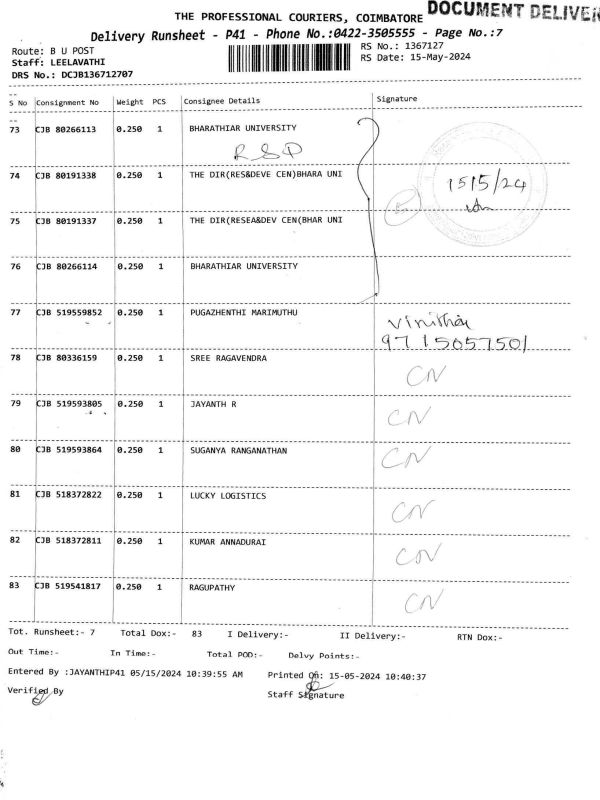 DOCUMENT DELIVER
THE PROFESSIONAL COURIERS, COIMBATORE
Delivery Runsheet - P41 - Phone No.:0422-3505555 - Page No.:7
Route: B U POST
RS No.: 1367127
Staff: LEELAVATHI
RS Date: 15-May-2024
DRS No.: DCJB136712707
S No Consignment No Weight PCS Consignee Details Signature
73 CJB 80266113 0.250 1 BHARATHIAR UNIVERSITY
RSD
74 CJB 80191338 0.250 1 THE DIR(RES&DEVE CEN)BHARA UNI
15/5/24
75 CJB 80191337 0.250 1 THE DIR(RESEA&DEV CEN(BHAR UNI
76 CJB 80266114 0.250 1 BHARATHIAR UNIVERSITY
77 CJB 519559852 0.250 1 PUGAZHENTHI MARIMUTHU
Vinitha
9715057501
78 CJB 80336159 0.250 1 SREE RAGAVENDRA CN
79 CJB 519593805 0.250 1 JAYANTH R CN
80 CJB 519593864 0.250 1 SUGANYA RANGANATHAN CN
81 CJB 518372822 0.250 1 LUCKY LOGISTICS CN
82 CJB 518372811 0.250 1 KUMAR ANNADURAI CN
83 CJB 519541817 0.250 1 RAGUPATHY CN
Tot. Runsheet:- 7 Total Dox:- 83 I Delivery:- II Delivery:- RTN Dox:-
Out Time:- In Time:- Total POD:- Delvy Points:-
Entered By :JAYANTHIP41 05/15/2024 10:39:55 AM Printed On: 15-05-2024 10:40:37
Verified By Staff Signature